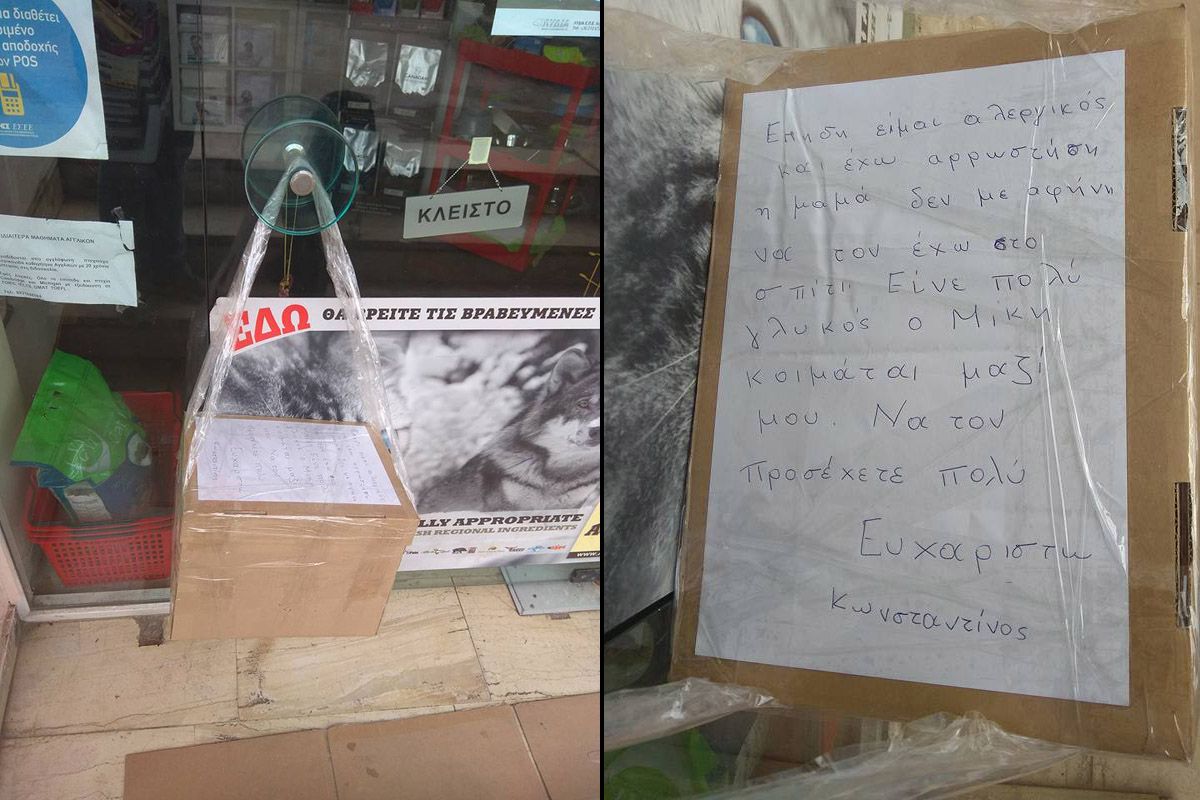 ια διαθέτει
αποδοχής
ων POS
ΕΣΕΕ
ΚΛΕΙΣΤΟ
ΙΔΙΑΙΤΕΡΑ ΜΑΘΗΜΑΤΑ ΑΓΓΛΙΚΩΝ
ΕΔΩ ΘΑ ΒΡΕΙΤΕ ΤΙΣ ΒΡΑΒΕΥΜΕΝΕΣ
LLY APPROPRIATE
SH REGIONAL INGREDIENTS
Επηδη είμαι αλεργικός
και έχω αρρωστήση
η μαμά δεν με αφήνη
να τον έχω στο
σπίτι. Είνε πολύ
γλυκός ο Μίκη
κοιμάται μαζί
μου. Να τον
Προσέχετε πολύ
Ευχαριστω
Κωνσταντίνος